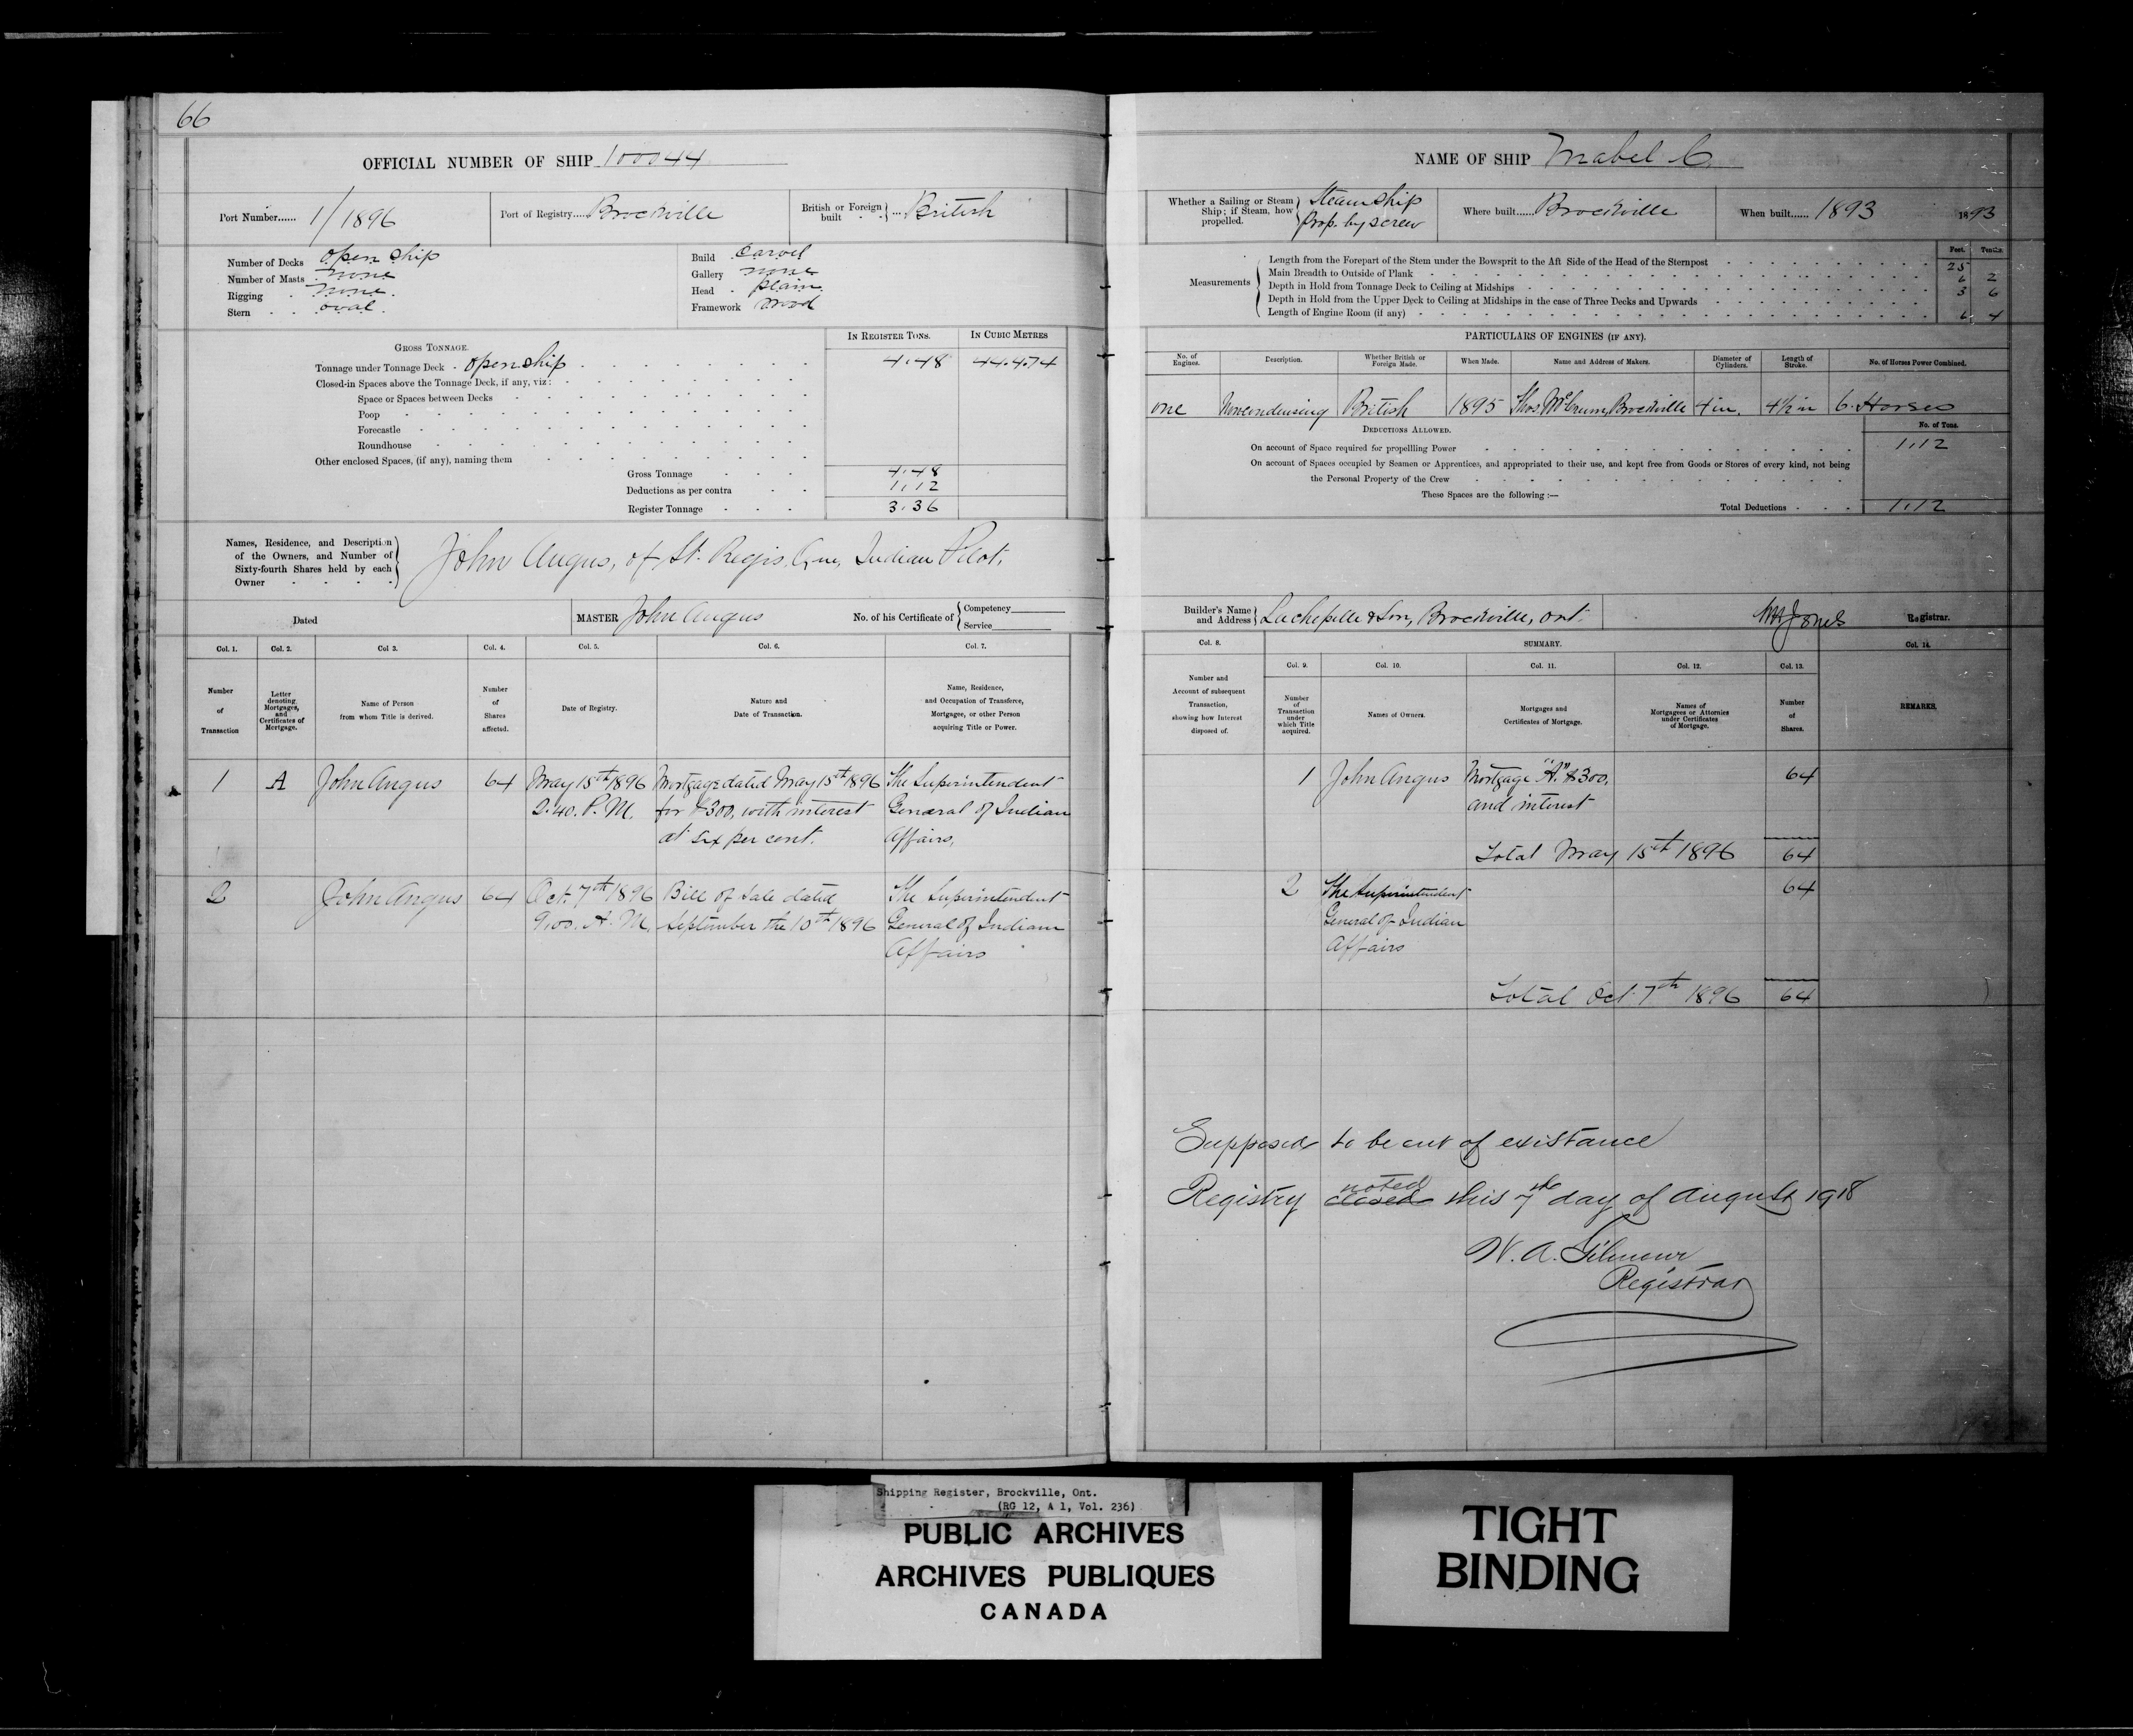 66
OFFICIAL NUMBER OF SHIP 100044
Port Number...... 1/1896
Port of Registry.... Brockville
British or Foreign built ... British
Number of Decks open ship
Number of Masts none
Rigging none.
Stern oval.
Build Carvel
Gallery none
Head plain
Framework Wood
GROSS TONNAGE.
IN REGISTER TONS.
IN CUBIC METRES
Tonnage under Tonnage Deck open ship 4.48 44.474
Closed-in Spaces above the Tonnage Deck, if any, viz:
Space or Spaces between Decks
Poop
Forecastle
Roundhouse
Other enclosed Spaces, (if any), naming them
Gross Tonnage 4.48
Deductions as per contra 1.12
Register Tonnage 3.36
Names, Residence, and Description
of the Owners, and Number of
Sixty-fourth Shares held by each
Owner
John Angus, of St. Regis, Que, Indian Pilot.
Dated
MASTER John Angus
No. of his Certificate of
Competency
Service
Col. 1.
Col. 2.
Col 3.
Col. 4.
Col. 5.
Col. 6.
Col. 7.
Number
of
Transaction
Letter
denoting
Mortgages,
and
Certificates of
Mortgage.
Name of Person
from whom Title is derived.
Number
of
Shares
affected.
Date of Registry.
Nature and
Date of Transaction.
Name, Residence,
and Occupation of Transferee,
Mortgagee, or other Person
acquiring Title or Power.
1 A John Angus 64 May 15th 1896 Mortgage dated May 15th 1896 The Superintendent
2.40. P.M. for $300, with interest General of Indian
at six per cent. Affairs,
2 John Angus 64 Oct. 7th 1896 Bill of Sale dated The Superintendent
9.00. A.M. September the 10th 1896 General of Indian
Affairs
NAME OF SHIP Mabel C.
Whether a Sailing or Steam
Ship; if Steam, how
propelled.
Steam Ship
Prop. by screw
Where built...... Brockville
When built...... 1893
1893
Measurements
Feet. Tenths.
Length from the Forepart of the Stem under the Bowsprit to the Aft Side of the Head of the Sternpost 25
Main Breadth to Outside of Plank 6 2
Depth in Hold from Tonnage Deck to Ceiling at Midships 3 6
Depth in Hold from the Upper Deck to Ceiling at Midships in the case of Three Decks and Upwards
Length of Engine Room (if any) 6 4
PARTICULARS OF ENGINES (IF ANY).
No. of
Engines.
Description.
Whether British or
Foreign Made.
When Made.
Name and Address of Makers.
Diameter of
Cylinders.
Length of
Stroke.
No. of Horses Power Combined.
one Noncondensing British 1895 Thos. McCrum, Brockville 4 in. 4½ in 6. Horses
DEDUCTIONS ALLOWED.
No. of Tons.
On account of Space required for propellling Power 1.12
On account of Spaces occupied by Seamen or Apprentices, and appropriated to their use, and kept free from Goods or Stores of every kind, not being
the Personal Property of the Crew
These Spaces are the following :—
Total Deductions 1.12
Builder's Name
and Address
Lachapelle & Son, Brockville, Ont.
Jones
Registrar.
Col. 8.
SUMMARY.
Col. 14.
Col. 9.
Col. 10.
Col. 11.
Col. 12.
Col. 13.
Number and
Account of subsequent
Transaction,
showing how Interest
disposed of.
Number
of
Transaction
under
which Title
acquired.
Names of Owners.
Mortgages and
Certificates of Mortgage.
Names of
Mortgagees or Attornies
under Certificates
of Mortgage.
Number
of
Shares.
REMARKS.
1 John Angus Mortgage "A." $300, 64
and interest
Total May 15th 1896 64
2 The Superintendent 64
General of Indian
Affairs
Total Oct. 7th 1896 64
Supposed to be out of existance
noted
Registry closed this 7th day of August 1918
W. A. Gilmour
Registrar
Shipping Register, Brockville, Ont.
(RG 12, A 1, Vol. 236)
PUBLIC ARCHIVES
ARCHIVES PUBLIQUES
CANADA
TIGHT
BINDING